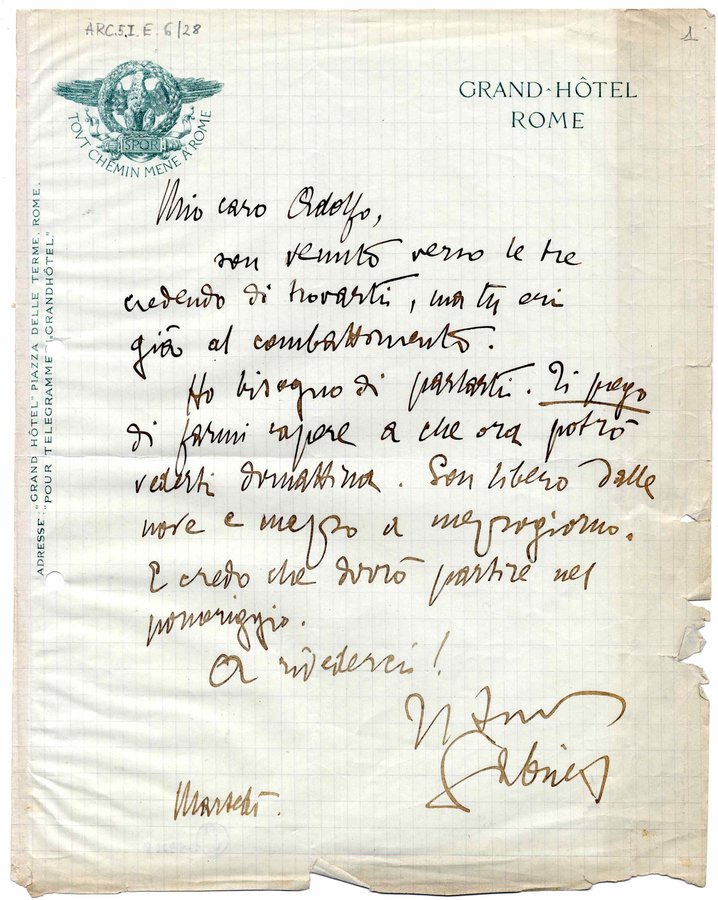 ARC.5.I.E.6/28
1
GRAND-HÔTEL
ROME
SPQR
TOVT CHEMIN MENE A ROME
ADRESSE: "GRAND HÔTEL" PIAZZA DELLE TERME, ROME.
"POUR TELEGRAMME: GRANDHÔTEL."
Mio caro Adolfo,
son venuto verso le tre
credendo di trovarti, ma tu eri
già al combattimento.
Ho bisogno di parlarti. Ti prego
di farmi sapere a che ora potrò
vederti domattina. Son libero dalle
nove e mezzo a mezzogiorno.
E credo che dovrò partire nel
pomeriggio.
A rivederci!
Il tuo
Gabriel
Martedì.